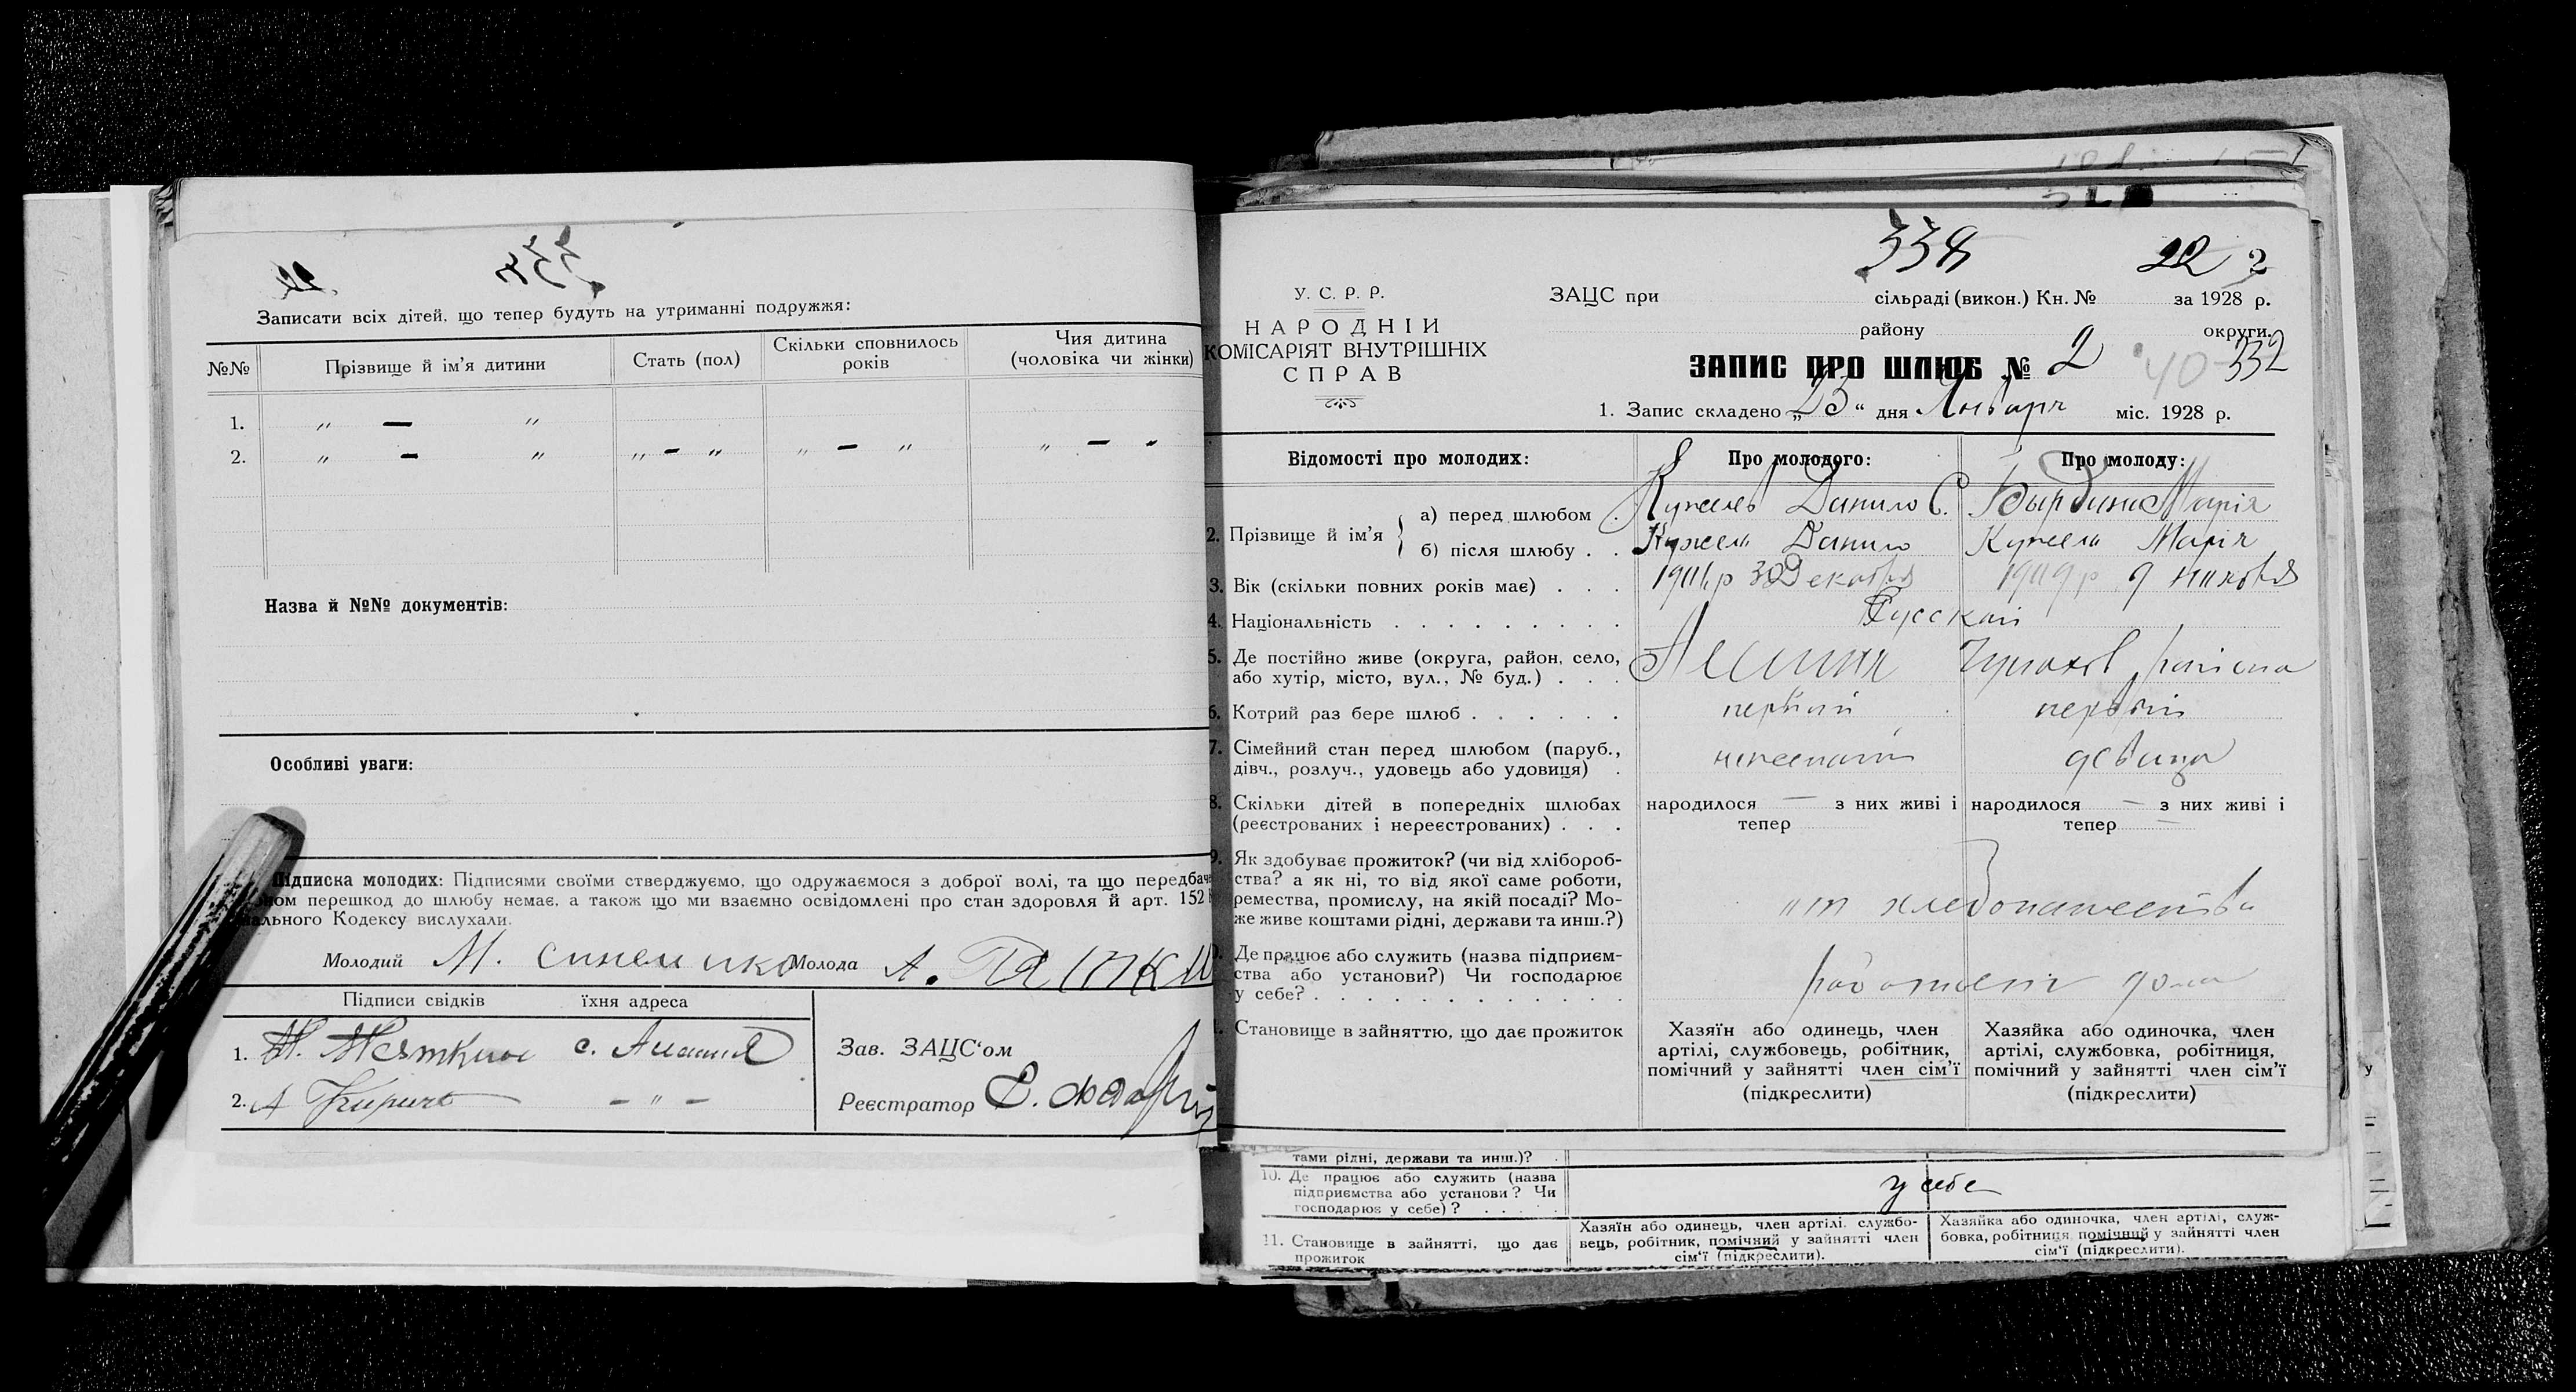 Записати всіх дітей, що тепер будуть на утриманні подружжя:
№№ Прізвище й ім'я дитини Стать (пол) Скільки сповнилось років Чия дитина (чоловіка чи жінки)
1. „ — „
2. „ — „ „ — „ „ — „ „ — „
Назва й №№ документів:
Особливі уваги:
Підписка молодих: Підписями своїми стверджуємо, що одружаємося з доброї волі, та що передбаче
ном перешкод до шлюбу немає, а також що ми взаємно освідомлені про стан здоровля й арт. 152
ального Кодексу вислухали.
Молодий М. Молода А.
Підписи свідків їхня адреса
1. с.
2. А — „ —
Зав. ЗАЦС'ом
Реєстратор Е.
338 22 2
У. С. Р. Р.
НАРОДНІЙ
КОМІСАРІЯТ ВНУТРІШНІХ
СПРАВ
ЗАЦС при сільраді (викон.) Кн. № за 1928 р.
району округи.
ЗАПИС ПРО ШЛЮБ № 2 40 332
1. Запис складено „25" дня Января міс. 1928 р.
Відомості про молодих: Про молодого: Про молоду:
2. Прізвище й ім'я
а) перед шлюбом . Данило С. Марія
б) після шлюбу . . Кужель Данило Кужель Марія
3. Вік (скільки повних років має) . . . Декабря 1909 р. 9
4. Національність . . . . . . . . . Русский
5. Де постійно живе (округа, район, село,
або хутір, місто, вул., № буд.) . . . района
6. Котрий раз бере шлюб . . . . . . первый первый
7. Сімейний стан перед шлюбом (паруб.,
дівч., розлуч., удовець або удовиця) . неженатый девица
8. Скільки дітей в попередніх шлюбах
(реєстрованих і нереєстрованих) . . .
народилося — з них живі і
тепер
народилося — з них живі і
тепер —
9. Як здобуває прожиток? (чи від хлібороб-
ства? а як ні, то від якої саме роботи,
ремества, промислу, на якій посаді? Мо-
же живе коштами рідні, держави та инш.?)
от хлебопашества
Де працює або служить (назва підприєм-
ства або установи?) Чи господарює
у себе? . . . . . . . . . . . . .
работает дома
Становище в зайняттю, що дає прожиток
Хазяїн або одинець, член
артілі, службовець, робітник,
помічний у зайнятті член сім'ї
(підкреслити)
Хазяйка або одиночка, член
артілі, службовка, робітниця,
помічний у зайнятті член сім'ї
(підкреслити)
тами рідні, держави та инш.)? .
10. Де працює або служить (назва
підприємства або установи? Чи
господарює у себе)? . . . . .
у себе
11. Становище в зайнятті, що дає
прожиток
Хазяїн або одинець, член артілі, службо-
вець, робітник, помічний у зайнятті член
сім'ї (підкреслити).
Хазяйка або одиночка, член артілі, служ-
бовка, робітниця, помічний у зайнятті член
сім'ї (підкреслити).